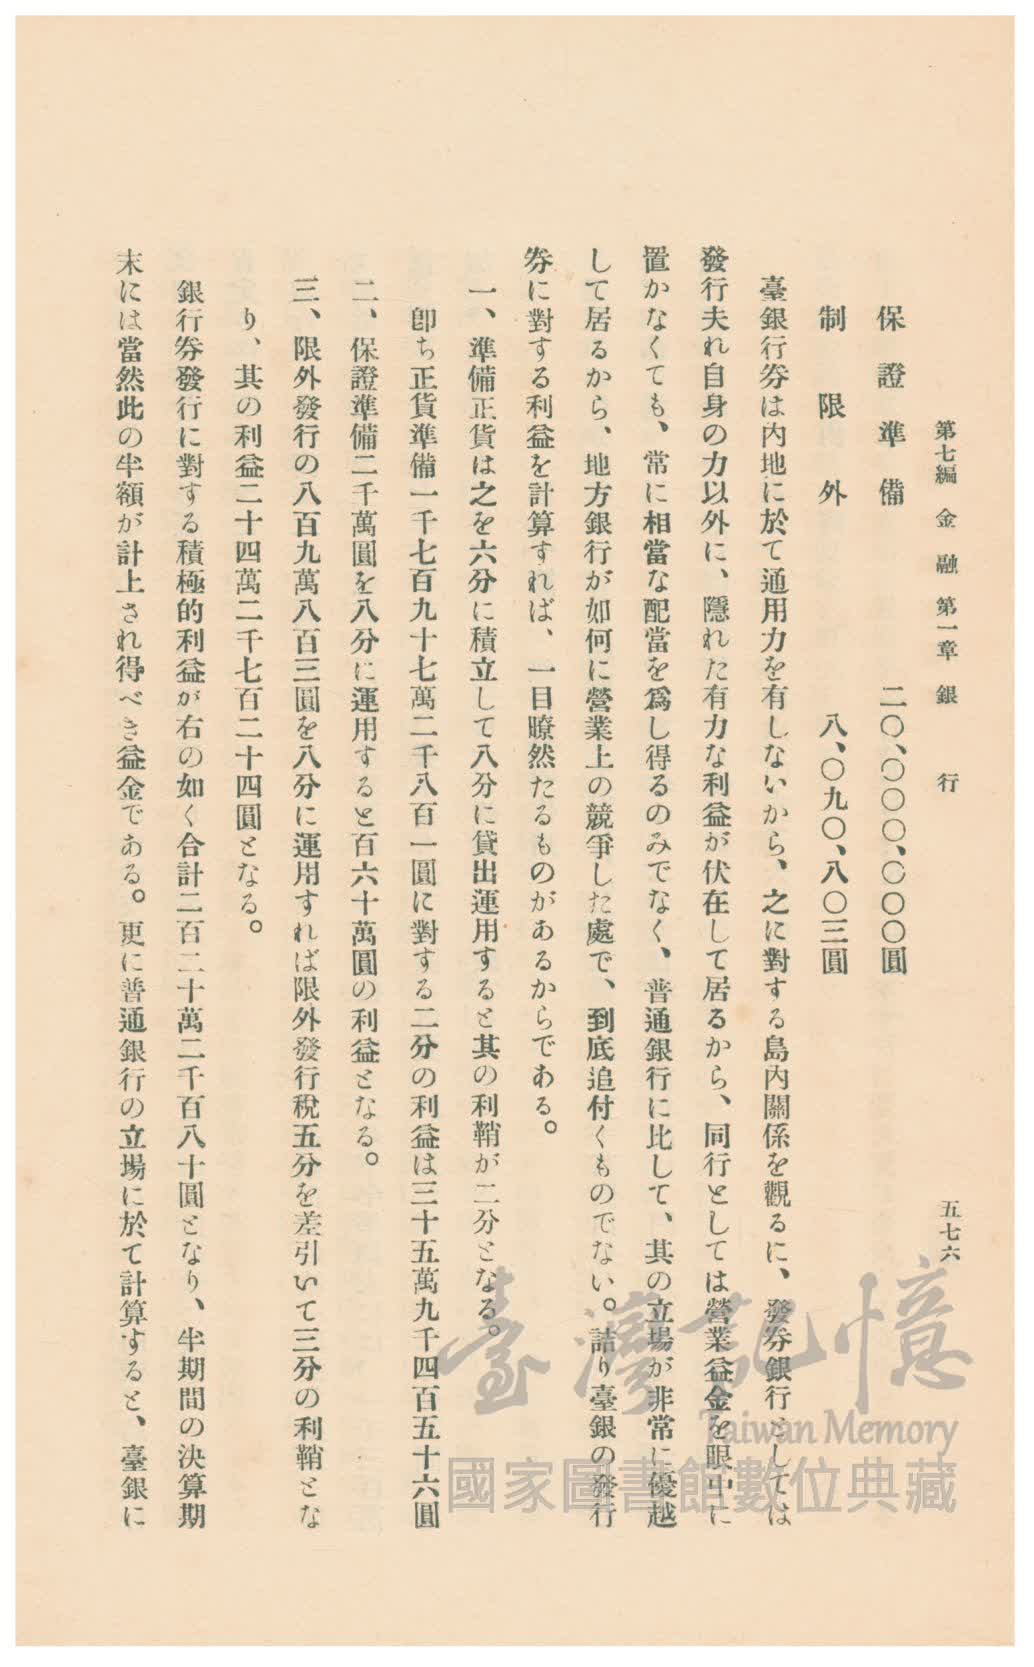 第七編 金融 第一章 銀行 五七六
保證準備 二〇、〇〇〇、〇〇〇圓
制限外 八、〇九〇、八〇三圓
臺銀行券は內地に於て通用力を有しないから、之に對する島內關係を觀るに、發券銀行としては
發行夫れ自身の力以外に、隱れた有力な利益が伏在して居るから、同行としては營業益金を眼中に
置かなくても、常に相當な配當を爲し得るのみでなく、普通銀行に比して、其の立場が非常に優越
して居るから、地方銀行が如何に營業上の競爭した處で、到底追付くものでない。詰り臺銀の發行
券に對する利益を計算すれば、一目瞭然たるものがあるからである。
一、準備正貨は之を六分に積立して八分に貸出運用すると其の利鞘が二分となる。
卽ち正貨準備一千七百九十七萬二千八百一圓に對する二分の利益は三十五萬九千四百五十六圓
二、保證準備二千萬圓を八分に運用すると百六十萬圓の利益となる。
三、限外發行の八百九萬八百三圓を八分に運用すれば限外發行稅五分を差引いて三分の利鞘とな
り、其の利益二十四萬二千七百二十四圓となる。
銀行券發行に對する積極的利益が右の如く合計二百二十萬二千百八十圓となり、半期間の決算期
末には當然此の半額が計上され得べき益金である。更に普通銀行の立場に於て計算すると、臺銀に
臺灣記憶
Taiwan Memory
國家圖書館數位典藏